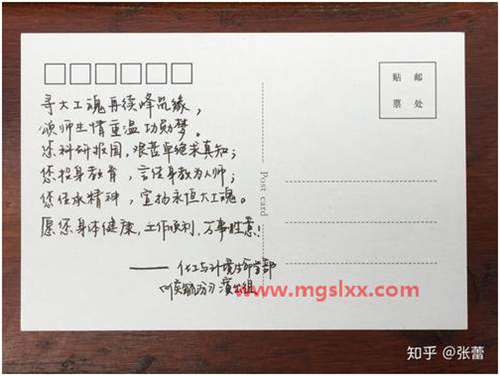 贴 邮
票 处
寻大工魂再续峰岚缘，
颂师生情重温功勋梦。
您科研报国，艰苦卓绝求真知；
您投身教育，言传身教为人师；
您传承精神，宣扬永恒大工魂。
愿您身体健康，工作顺利，万事胜意！
Post card
—— 化工与环境生命学部
演出组
www.mgslxx.com
知乎 @张蕾